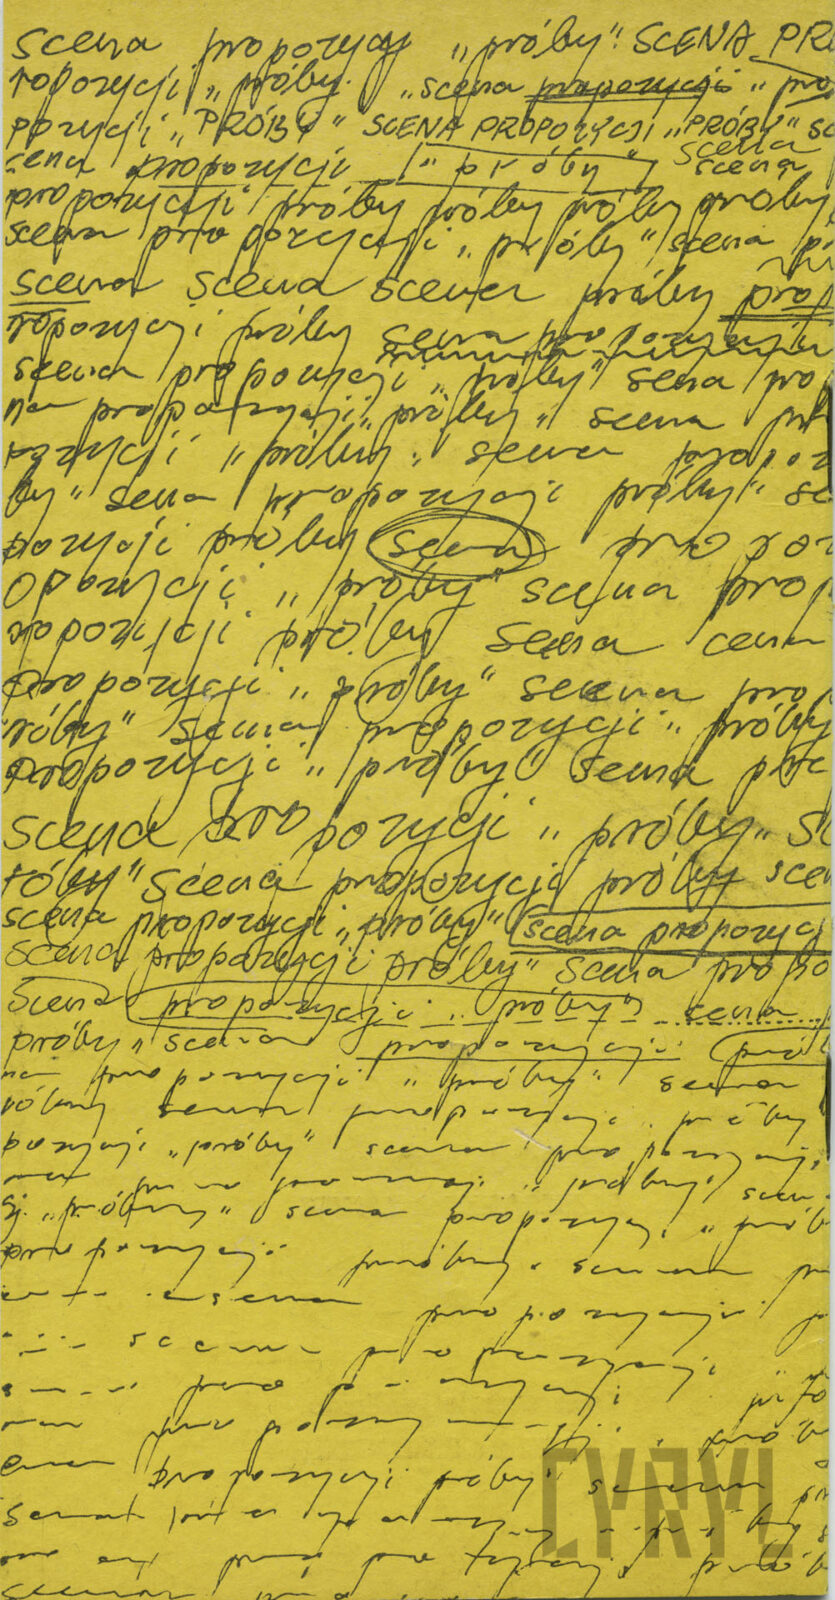 scena propozycji „próby" SCENA PR
ropozycji „próby. „scena propozycji „pro
pozycji „PRÓBY" SCENA PROPOZYCJI „PRÓBY" SC
cena propozycji „próby" scena scena
propozycji próby próby próby próby
scena propozycji „próby" scena p
scena scena scena próby prop
ropozycji próby scena propozycji
scena propozycji „próby" scena pro
na propozycji „próby" scena pr
ozycji „próby" scena propoz
by" scena propozycji próby" sc
pozycji próby scena propoz
opozycji „próby" scena prop
ropozycji próby scena cena
propozycji „próby" scena pro
róby" scena propozycji „próby
propozycji „próby" scena pro
scena propozycji „próby" sc
róby" scena propozycji próby scen
scena propozycji „próby" scena propozyc
scena propozycji próby" scena propo
scena propozycji „próby" scena
próby" scena propozycji pró
na propozycji „próby" scena
róby scena propozycji próby
pozycji „próby" scena propozycji
propozycji „próby" scen
ji „próby" scena propozycji „prób
propozycji próby scena pr
scena propozycji
scena propozycji
propozycji pró
propozycji prób
cena propozycji próby scena
scena by
propozycji prób
scena
CYRYL